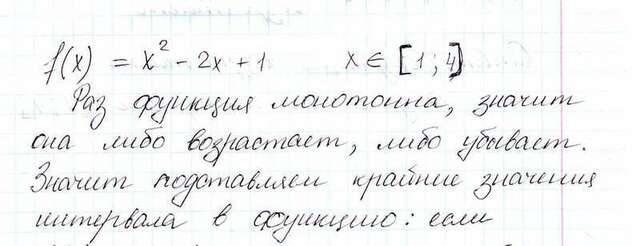 f(x) = x² - 2x + 1 x ∈ [1; 4]
Раз функция монотонна, значит
она либо возрастает, либо убывает.
Значит подставляем крайние значения
интервала в функцию: если